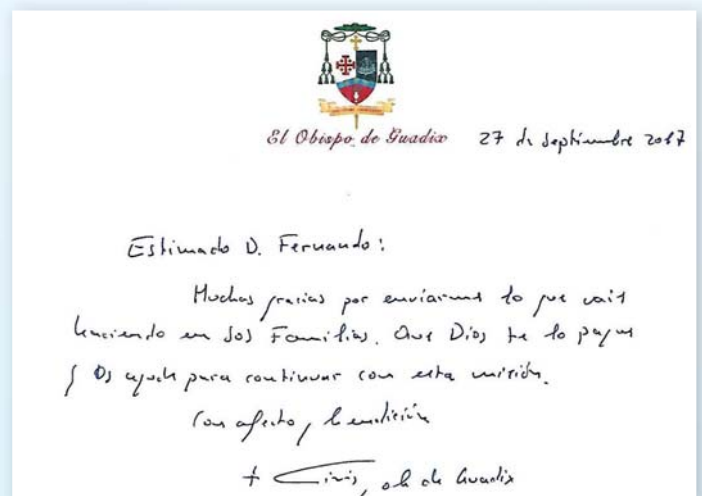 El Obispo de Guadix
27 de Septiembre 2017
Estimado D. Fernando:
Muchas gracias por enviarme lo que vais
haciendo en SOS Familias. Que Dios te lo pague
y os ayude para continuar con esta misión.
Con afecto y bendición
+ Ginés, ob de Guadix